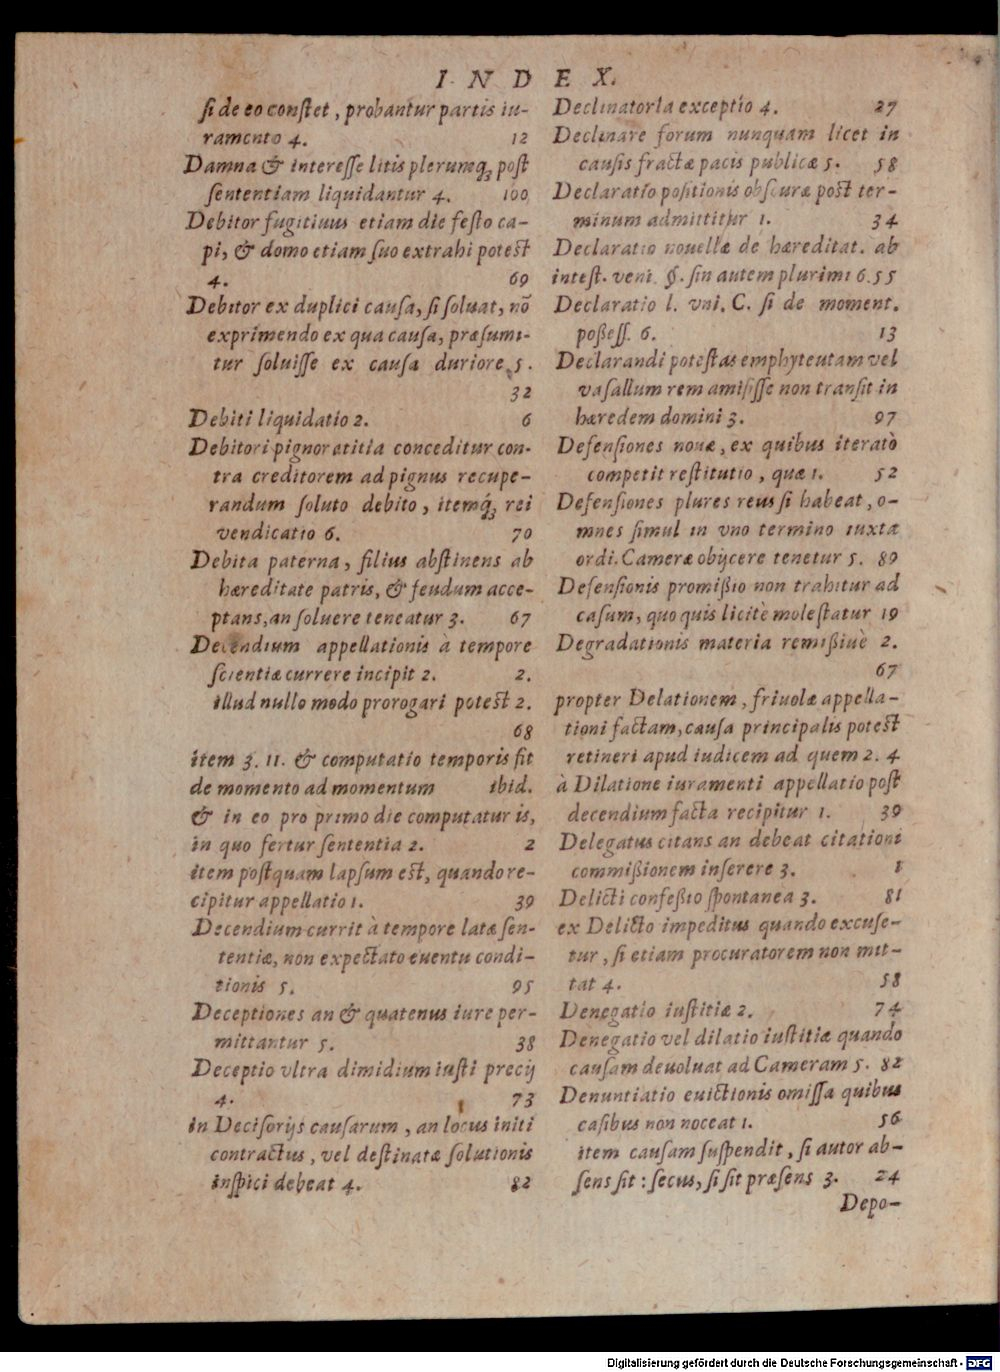 INDEX.
ſi de eo conſtet, probantur partis iu-
ramento 4. 12
Damna & intereſſe litis plerumq; poſt
ſententiam liquidantur 4. 100
Debitor fugitiuus etiam die feſto ca-
pi, & domo etiam ſuo extrahi poteſt
4. 69
Debitor ex duplici cauſa, ſi ſoluat, nõ
exprimendo ex qua cauſa, præſumi-
tur ſoluiſſe ex cauſa duriore 5.
32
Debiti liquidatio 2. 6
Debitori pignoratitia conceditur con-
tra creditorem ad pignus recupe-
randum ſoluto debito, itemq́; rei
vendicatio 6. 70
Debita paterna, filius abſtinens ab
hæreditate patris, & feudum acce-
ptans, an ſoluere teneatur 3. 67
Decendium appellationis à tempore
ſcientiæ currere incipit 2. 2.
illud nullo modo prorogari poteſt 2.
68
item 3. 11. & computatio temporis fit
de momento ad momentum ibid.
& in eo pro primo die computatur is,
in quo fertur ſententia 2. 2
item poſtquam lapſum eſt, quando re-
cipitur appellatio 1. 39
Decendium currit à tempore latæ ſen-
tentiæ, non expectato euentu condi-
tionis 5. 95
Deceptiones an & quatenus iure per-
mittantur 5. 38
Deceptio vltra dimidium iuſti precij
4. 73
in Deciſorijs cauſarum, an locus initi
contractus, vel deſtinatæ ſolutionis
inſpici debeat 4. 82
Declinatoria exceptio 4. 27
Declinare forum nunquam licet in
cauſis fractæ pacis publicæ 5. 58
Declaratio poſitionis obſcuræ poſt ter-
minum admittitur 1. 34
Declaratio nouellæ de hæreditat. ab
inteſt. veni. §. ſin autem plurimi 6. 55
Declaratio l. vni. C. ſi de moment.
poßeſſ. 6. 13
Declarandi poteſtas emphyteutam vel
vaſallum rem amiſiſſe non tranſit in
hæredem domini 3. 97
Defenſiones nouæ, ex quibus iteratò
competit reſtitutio, quæ 1. 52
Defenſiones plures reus ſi habeat, o-
mnes ſimul in vno termino iuxta
ordi. Cameræ obijcere tenetur 5. 89
Defenſionis promißio non trahitur ad
caſum, quo quis licitè moleſtatur 19
Degradationis materia remißiuè 2.
67
propter Delationem, friuolæ appella-
tioni factam, cauſa principalis poteſt
retineri apud iudicem ad quem 2. 4
à Dilatione iuramenti appellatio poſt
decendium facta recipitur 1. 39
Delegatus citans an debeat citationi
commißionem inſerere 3. 1
Delicti confeßio ſpontanea 3. 81
ex Delicto impeditus quando excuſe-
tur, ſi etiam procuratorem non mit-
tat 4. 58
Denegatio iuſtitiæ 2. 74
Denegatio vel dilatio iuſtitiæ quando
cauſam deuoluat ad Cameram 5. 82
Denuntiatio euictionis omiſſa quibus
caſibus non noceat 1. 56
item cauſam ſuſpendit, ſi autor ab-
ſens ſit : ſecus, ſi ſit præſens 3. 24
Depo-
Digitalisierung gefördert durch die Deutsche Forschungsgemeinschaft - DFG